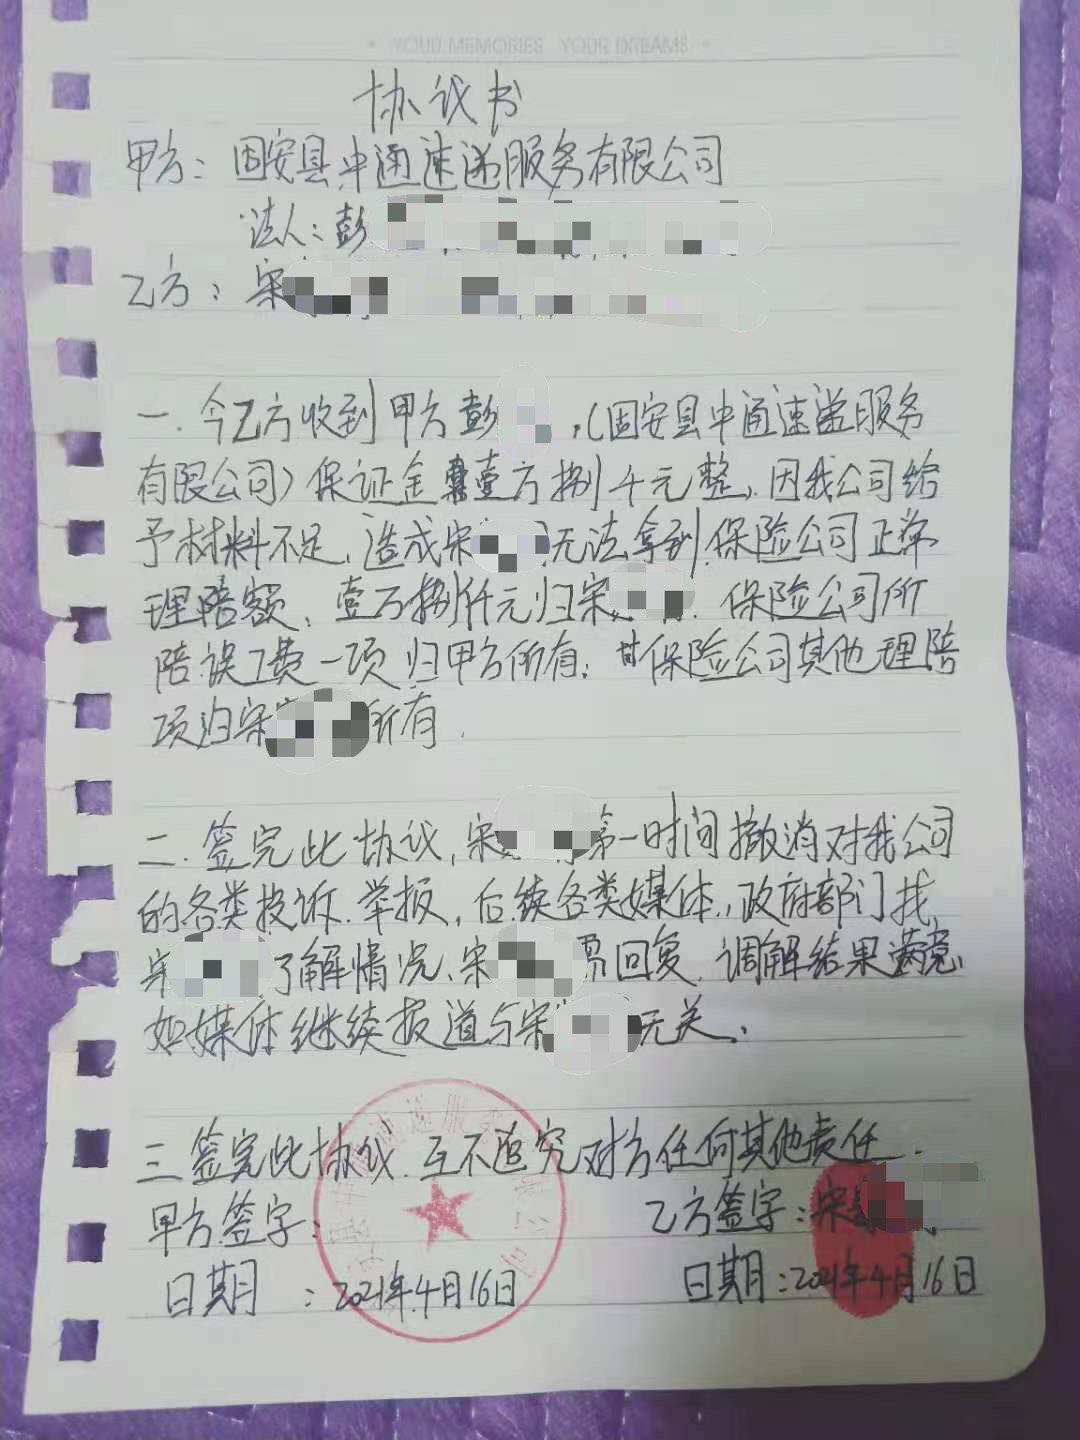 YOUR MEMORIES YOUR DREAMS
协议书
甲方：固安县中通速递服务有限公司
法人：彭
乙方：宋
一.今乙方收到甲方彭，（固安县中通速递服务
有限公司）保证金壹万捌千元整，因我公司给
予材料不足，造成宋无法拿到保险公司正常
理陪额、壹万捌仟元归宋．保险公司所
陪误工费一项归甲方所有；保险公司其他理陪
项归宋所有．
二.签完此协议，宋第一时间撤消对我公司
的各类投诉.举报，后续各类媒体，政府部门找
宋了解情况、宋回复．调解结果满意、
如媒体继续报道与宋无关．
三签完此协议．互不追究对方任何其他责任．
甲方签字： 乙方签字：宋
日期：2021年4月16日 日期：2021年4月16日